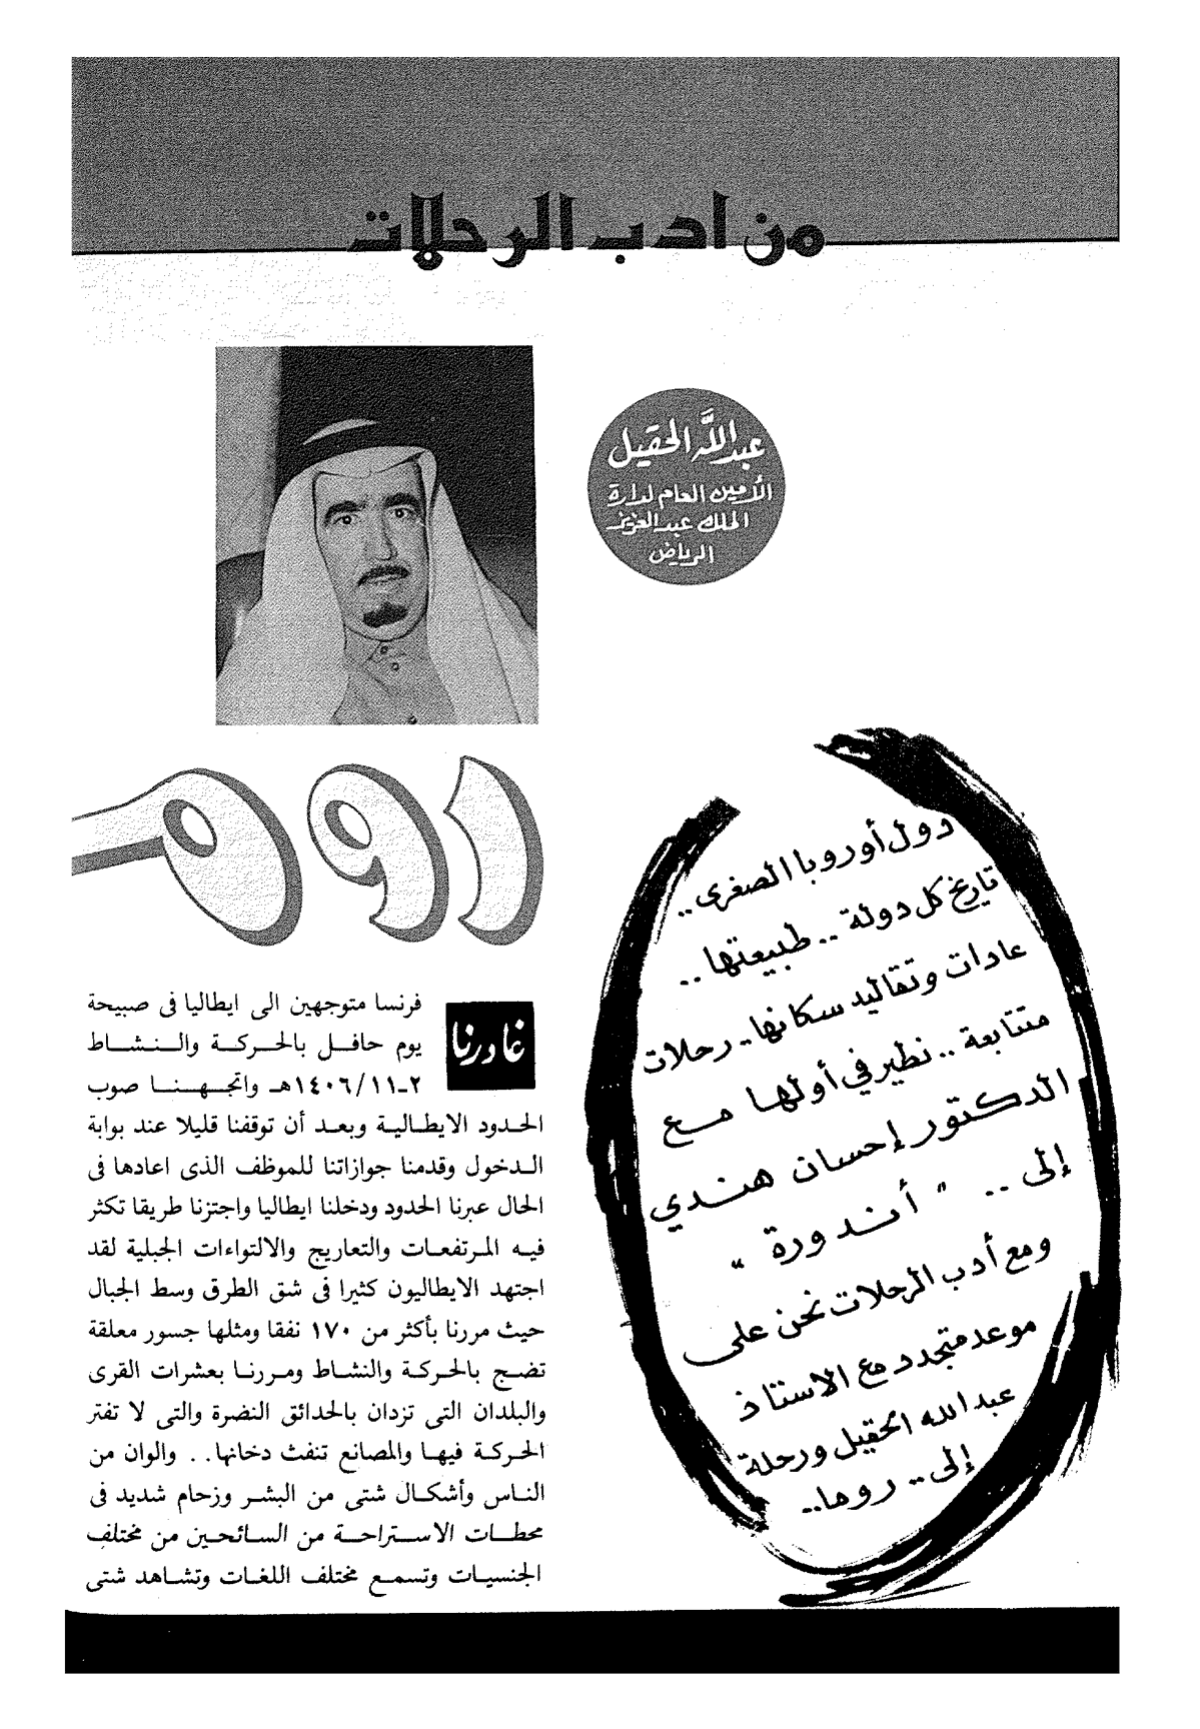 من ادب الرحلات
عبدالله الحقيل
الأمين العام لدارة
الملك عبدالعزيز
الرياض
دول أوروبا الصغرى ..
تاريخ كل دولة .. طبيعتها ..
عادات وتقاليد سكانها .. رحلات
متتابعة .. نطير في أولها مع
الدكتور إحسان هندي
إلى .. " أندورة "
ومع أدب الرحلات نحن على
موعد متجدد مع الاستاذ
عبدالله الحقيل ورحلة
إلى .. روما ..
رومـ
غادرنا فرنسا متوجهين الى ايطاليا فى صبيحة
يوم حافل بالحركة والنشاط
٢ـ١٤٠٦/١١هـ واتجهنا صوب
الحدود الايطالية وبعد أن توقفنا قليلا عند بوابة
الدخول وقدمنا جوازاتنا للموظف الذى اعادها فى
الحال عبرنا الحدود ودخلنا ايطاليا واجتزنا طريقا تكثر
فيه المرتفعات والتعاريج والالتواءات الجبلية لقد
اجتهد الايطاليون كثيرا فى شق الطرق وسط الجبال
حيث مررنا بأكثر من ١٧٠ نفقا ومثلها جسور معلقة
تضج بالحركة والنشاط ومررنا بعشرات القرى
والبلدان التى تزدان بالحدائق النضرة والتى لا تفتر
الحركة فيها والمصانع تنفث دخانها . . والوان من
الناس وأشكال شتى من البشر وزحام شديد فى
محطات الاستراحة من السائحين من مختلف
الجنسيات وتسمع مختلف اللغات وتشاهد شتى